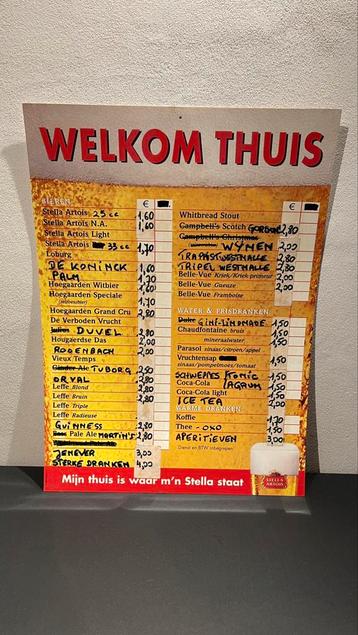 WELKOM THUIS
BIEREN
€
Stella Artois 25 cc 1,60
Stella Artois N.A. 1,60
Stella Artois Light
Stella Artois 33 cc 1,70
Loburg
DE KONINCK 1,60
PALM 1,70
Hoegaarden Witbier 1,60
Hoegaarden Speciale
(witbier) 1,70
Hoegaarden Grand Cru 2,80
De Verboden Vrucht
DUVEL 2,80
Hougaerdse Das 2,00
RODENBACH 2,00
Vieux Temps
TUBORG 2,50
ORVAL 2,80
Leffe Blond 2,80
Leffe Bruin 2,80
Leffe Triple
Leffe Radieuse
GUINNESS 2,80
Pale Ale MARTIN'S 2,80
JENEVER 3,00
STERKE DRANKEN 4,00
€
Whitbread Stout
Campbell's Scotch GORDON 2,80
Campbell's Christmas
Scotch WIJNEN 2,00
TRAPPIST WESTMALLE 2,80
TRIPEL WESTMALLE 2,80
Belle-Vue Kriek/Kriek primeur 2,00
Belle-Vue Gueuze 2,00
Belle-Vue Framboise
WATER & FRISDRANKEN
GINI-LIMONADE 1,50
Chaudfontaine bruis 1,50
mineraalwater
Parasol sinaas/citroen/appel 1,50
Vruchtensap
sinaas/pompelmoes/tomaat 1,50
SCHWEPPES TONIC 1,50
Coca-Cola AGRUM 1,50
Coca-Cola light 1,50
ICE TEA 2,00
WARME DRANKEN
Koffie 1,70
Thee - OXO 1,50
APERITIEVEN 3,00
Dienst en BTW inbegrepen
STELLA ARTOIS
Mijn thuis is waar m'n Stella staat